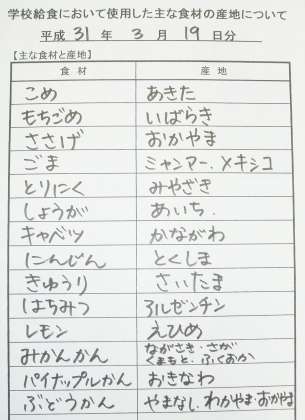 学校給食において使用した主な食材の産地について
平成 31 年 3 月 19 日分
【主な食材と産地】
食材 産地
こめ あきた
もちごめ いばらき
ささげ おかやま
ごま ミャンマー、メキシコ
とりにく みやざき
しょうが あいち.
キャベツ かながわ
にんじん とくしま
きゅうり さいたま
はちみつ アルゼンチン
レモン えひめ
みかんかん ながさき・さが
くまもと、ふくおか
パイナップルかん おきなわ
ぶどうかん やまなし、わかやま・おかやま